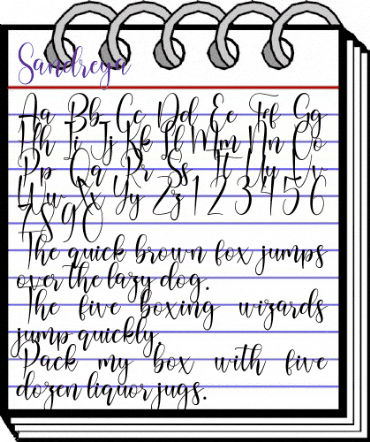 Sandreya
Aa Bb Cc Dd Ee Ff Gg
Hh Ii Jj Kk Ll Mm Nn Oo
Pp Qq Rr Ss Tt Uu Vv
Ww Xx Yy Zz 1 2 3 4 5 6
7 8 9 0
The quick brown fox jumps
over the lazy dog.
The five boxing wizards
jump quickly.
Pack my box with five
dozen liquor jugs.